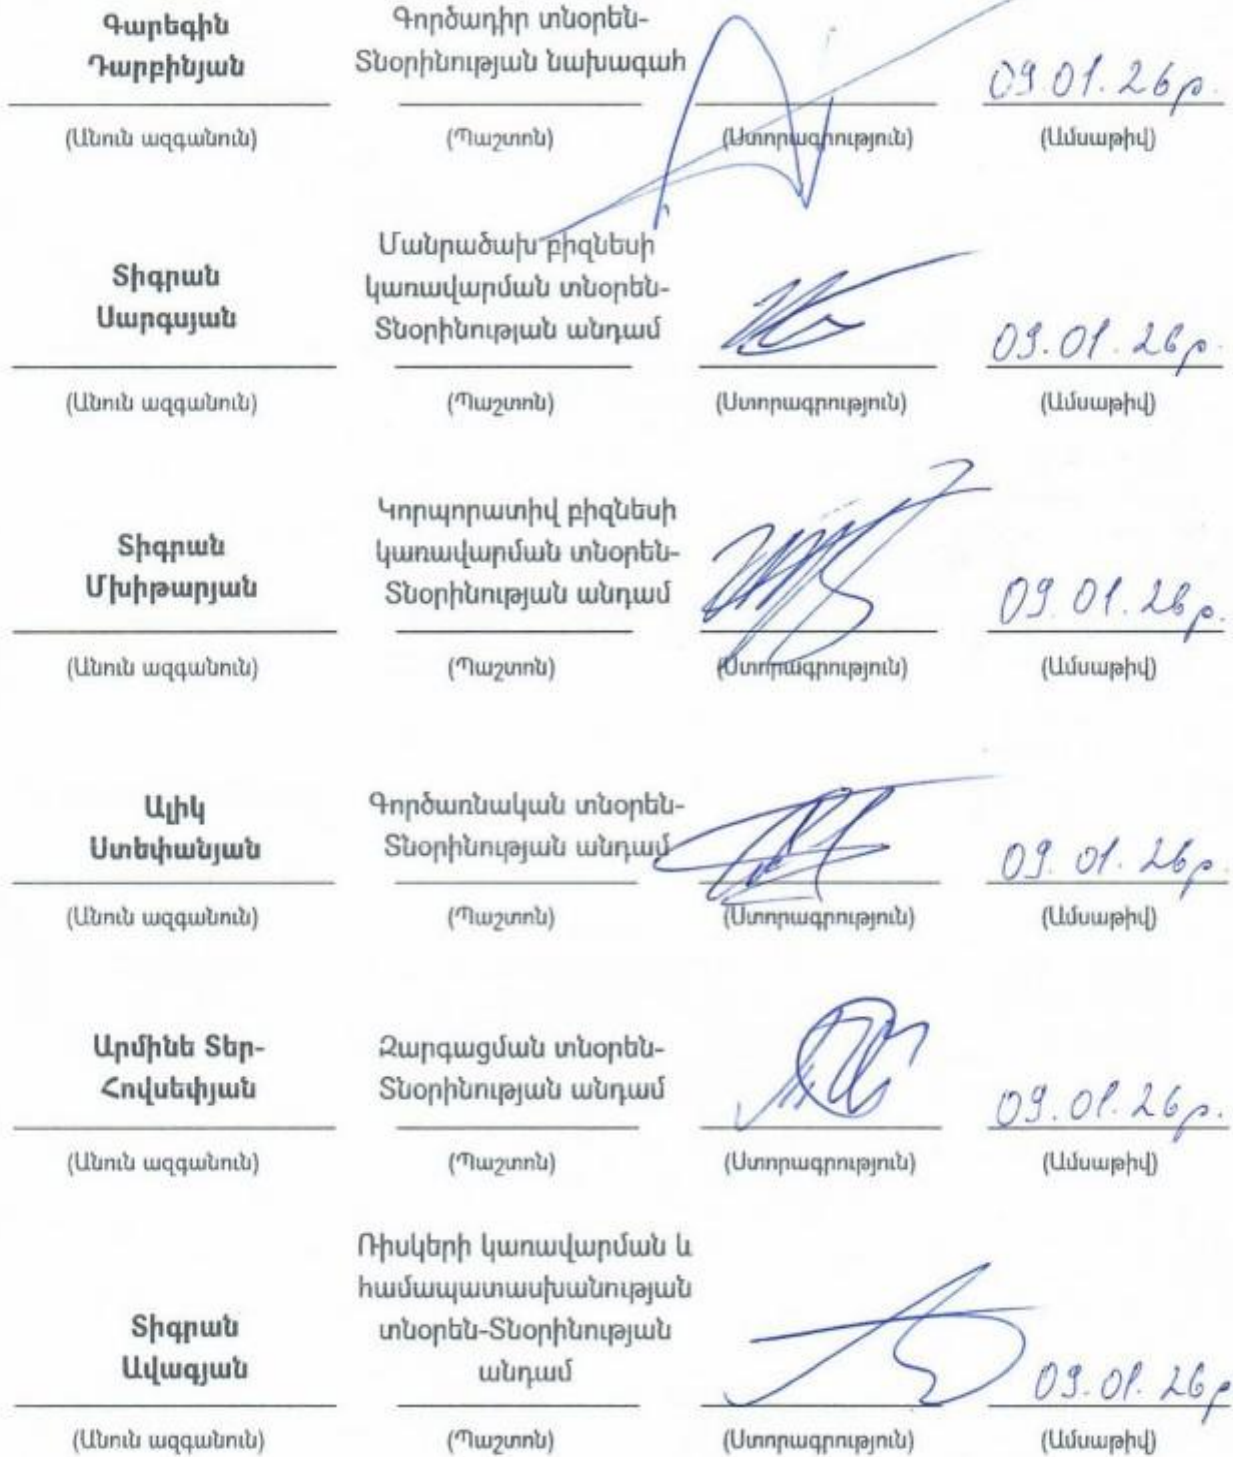 Գարեգին
Դարբինյան
Գործադիր տնօրեն-
Տնօրինության նախագահ
09.01.26թ.
(Անուն ազգանուն)
(Պաշտոն)
(Ստորագրություն)
(Ամսաթիվ)
Տիգրան
Սարգսյան
Մանրածախ բիզնեսի
կառավարման տնօրեն-
Տնօրինության անդամ
09.01.26թ.
(Անուն ազգանուն)
(Պաշտոն)
(Ստորագրություն)
(Ամսաթիվ)
Տիգրան
Մխիթարյան
Կորպորատիվ բիզնեսի
կառավարման տնօրեն-
Տնօրինության անդամ
09.01.26թ.
(Անուն ազգանուն)
(Պաշտոն)
(Ստորագրություն)
(Ամսաթիվ)
Ալիկ
Ստեփանյան
Գործառնական տնօրեն-
Տնօրինության անդամ
09.01.26թ.
(Անուն ազգանուն)
(Պաշտոն)
(Ստորագրություն)
(Ամսաթիվ)
Արմինե Տեր-
Հովսեփյան
Զարգացման տնօրեն-
Տնօրինության անդամ
09.01.26թ.
(Անուն ազգանուն)
(Պաշտոն)
(Ստորագրություն)
(Ամսաթիվ)
Տիգրան
Ավագյան
Ռիսկերի կառավարման և
համապատասխանության
տնօրեն-Տնօրինության
անդամ
09.01.26թ
(Անուն ազգանուն)
(Պաշտոն)
(Ստորագրություն)
(Ամսաթիվ)